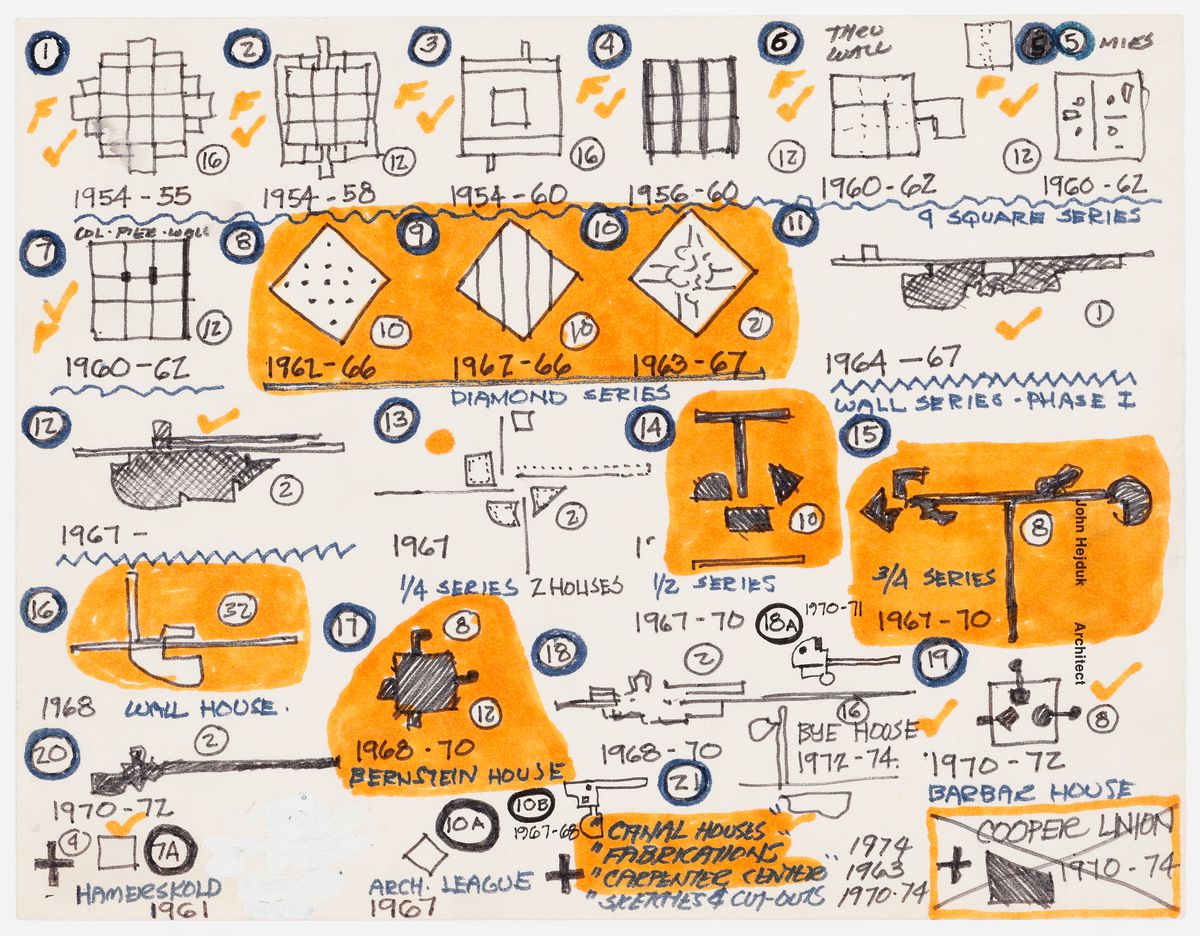 1
2
3
4
6
THRU
WALL
5
5
MIES
F
F
F
F
F
F
16
12
16
12
12
1954-55
1954-58
1954-60
1956-60
1960-62
1960-62
9 SQUARE SERIES
7
COL·PIER·WALL
8
9
10
11
F
12
10
10
2
1
1960-62
1962-66
1962-66
1963-67
1964-67
DIAMOND SERIES
WALL SERIES-PHASE I
12
13
14
15
2
2
10
8
1967-
1967
John Hejduk Architect
1/4 SERIES 2 HOUSES
1/2 SERIES
3/4 SERIES
1967-70
1967-70
16
32
17
8
12
18
2
18A
1970-71
19
1968
WALL HOUSE.
1968-70
BERNSTEIN HOUSE
1968-70
16
BYE HOUSE
1972-74.
8
1970-72
BARBAR HOUSE
20
2
1970-72
21
4
7A
HAMERSKOLD
1961
10A
ARCH. LEAGUE
1967
10B
1967-68
"CANAL HOUSES" 1974
"FABRICATIONS" 1963
"CARPENTER CENTER"
"SKETCHES & CUT-OUTS 1970-74
COOPER UNION
1970-74